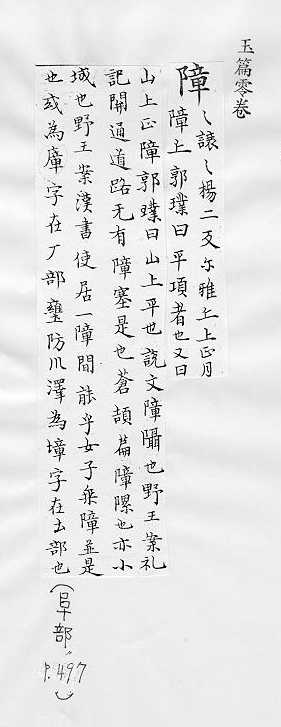 玉篇零卷
障〻讓〻楊二反尓雅土上正月
障上郭璞曰平頂者也又曰
山上正障郭璞曰山上平也說文障隔也野王案礼
記開通道路无有障塞是也蒼頡篇障隟也亦小
城也野王案漢書使居一障間能乎女子乘障並是
也或為庫字在广部壅防川澤為墇字在土部也
（阜部，P.497）